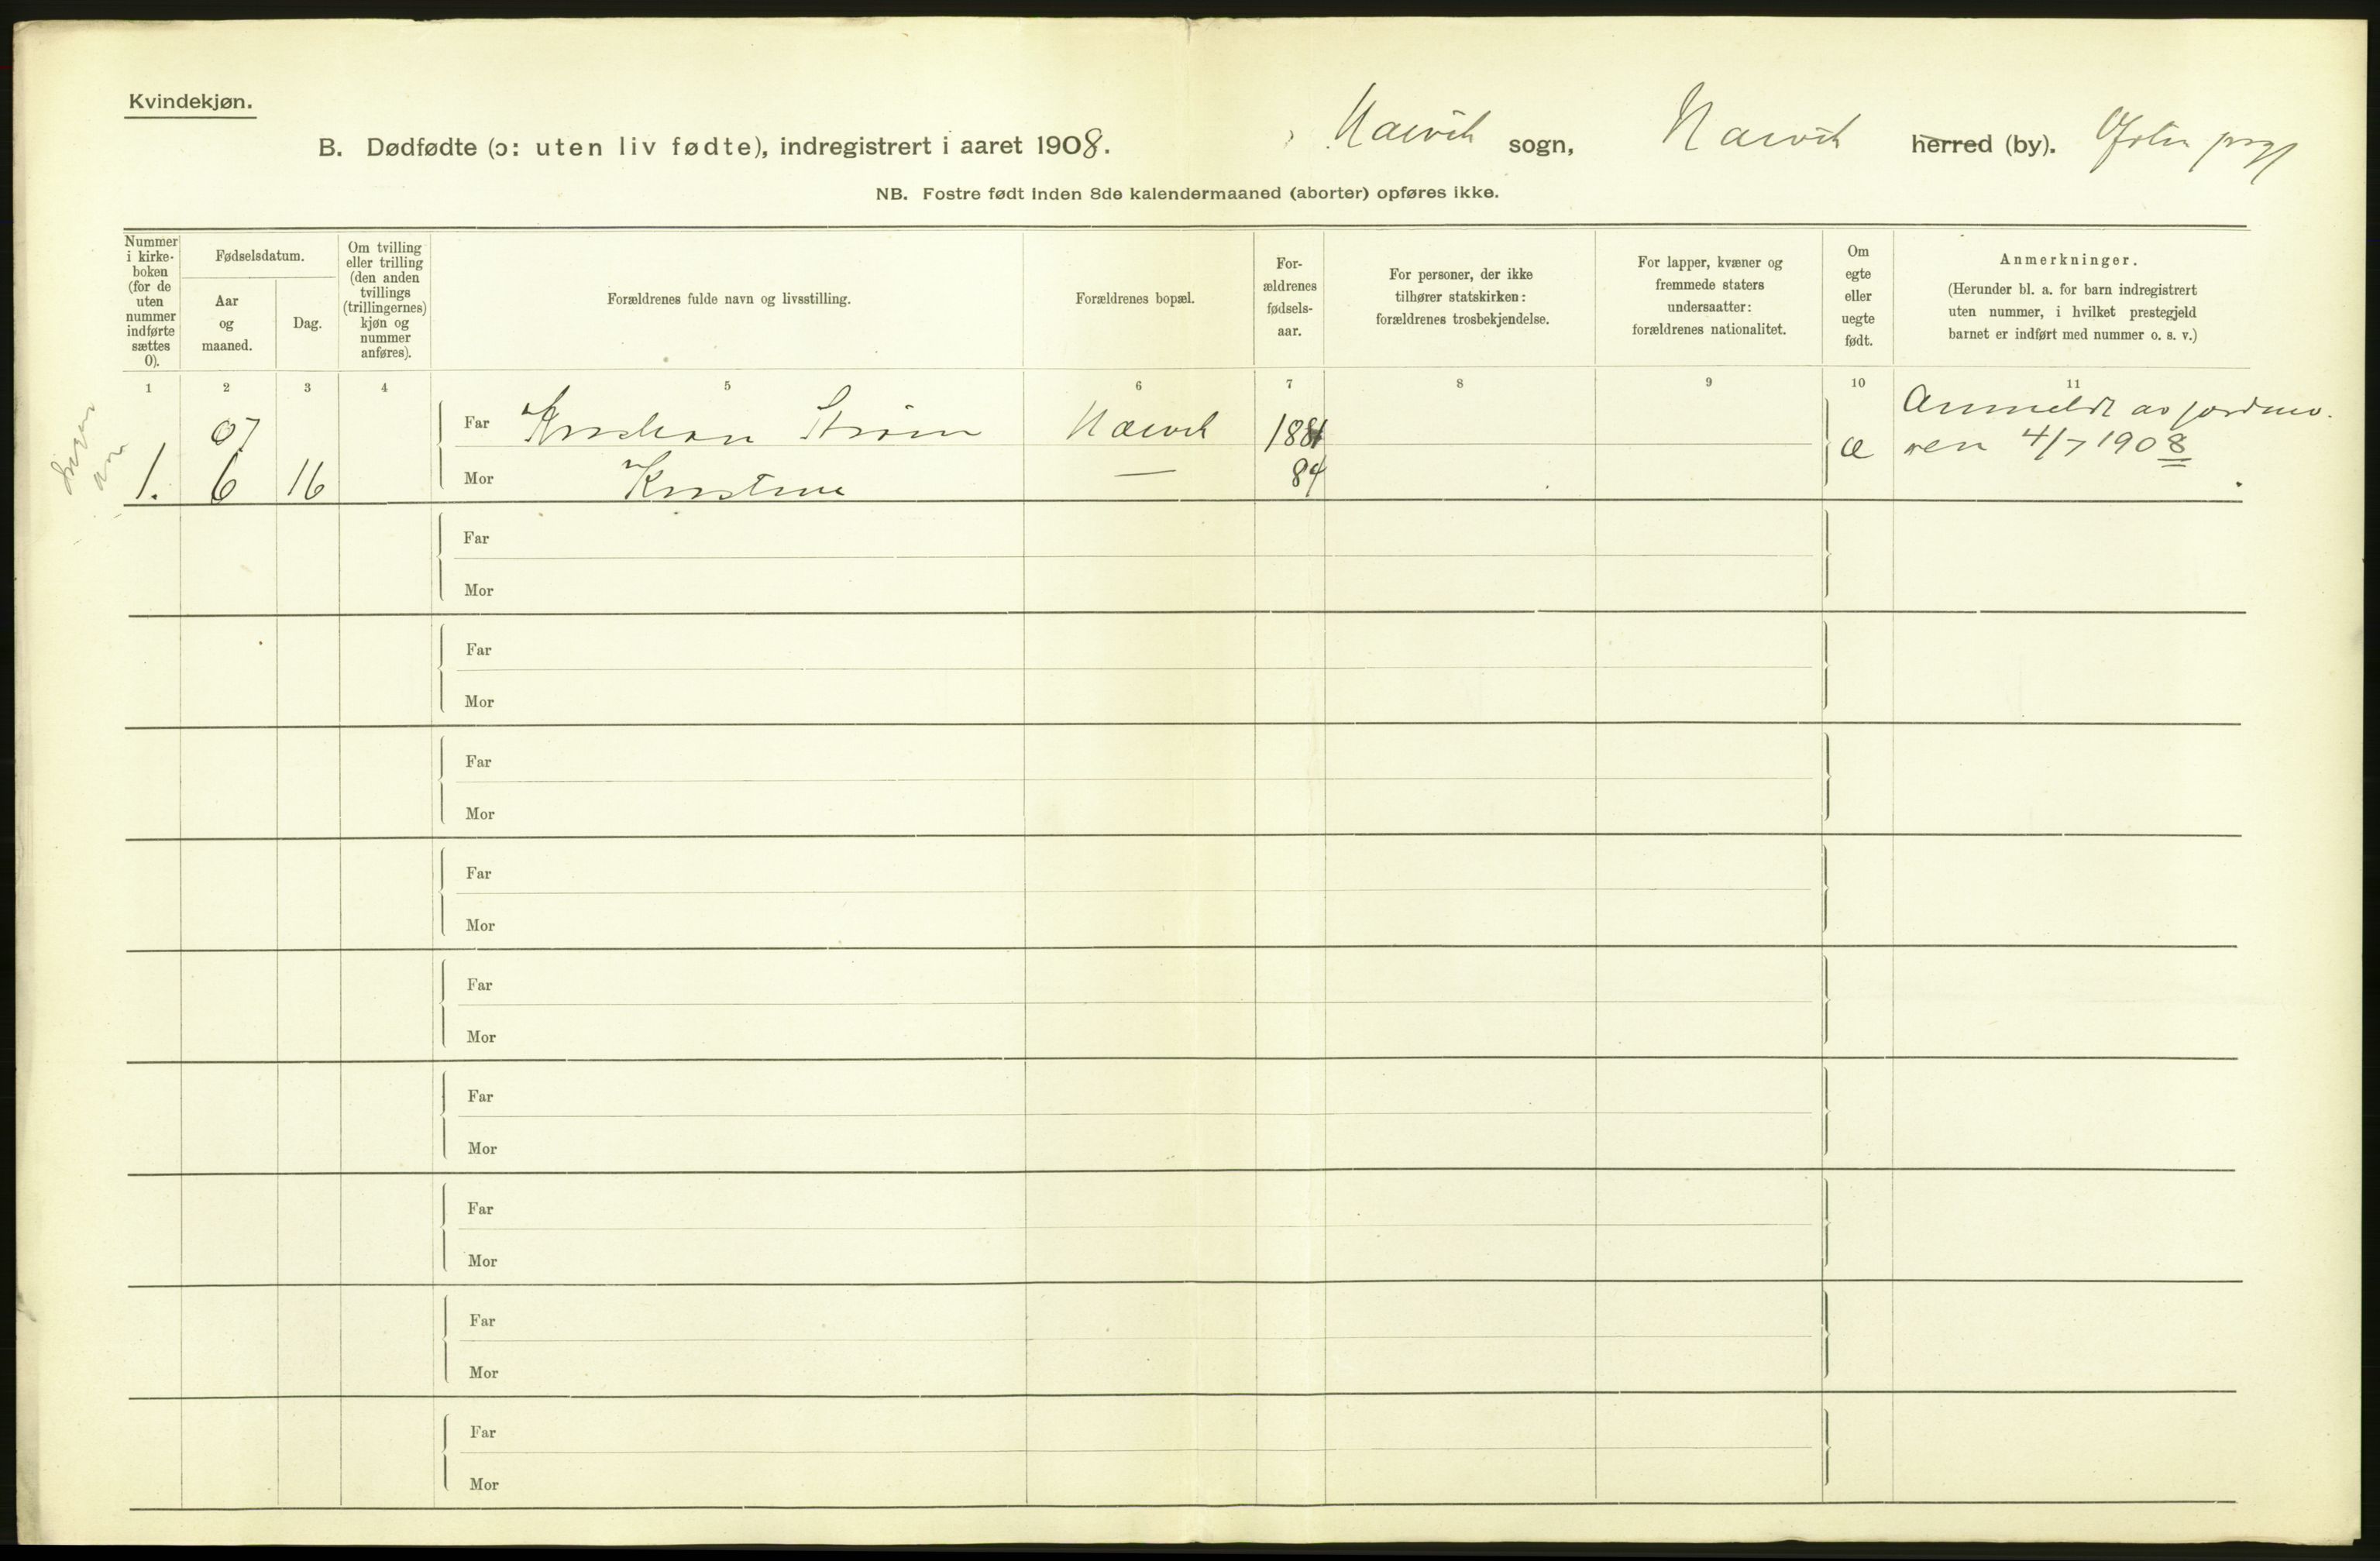 Kvindekjøn.
B. Dødfødte (ɔ: uten liv fødte), indregistrert i aaret 1908. Narvik sogn, Narvik herred (by). Ofoten prgj
NB. Fostre født inden 8de kalendermaaned (aborter) opføres ikke.
Nummer
i kirke-
boken
(for de
uten
nummer
indførte
sættes
0).
Fødselsdatum.
Aar
og
maaned.
Dag.
Om tvilling
eller trilling
(den anden
tvillings
(trillingernes)
kjøn og
nummer
anføres).
Forældrenes fulde navn og livsstilling.
Forældrenes bopæl.
For-
ældrenes
fødsels-
aar.
For personer, der ikke
tilhører statskirken:
forældrenes trosbekjendelse.
For lapper, kvæner og
fremmede staters
undersaatter:
forældrenes nationalitet.
Om
egte
eller
uegte
født.
Anmerkninger.
(Herunder bl. a. for barn indregistrert
uten nummer, i hvilket prestegjeld
barnet er indført med nummer o. s. v.)
1 2 3 4 5 6 7 8 9 10 11
07 Far Kristian Strøm Narvik 1881 Anmeldt av jordmo-
1. 6 16 Mor Kristine — 84 Æ ren 4/7 1908
Far
Mor
Far
Mor
Far
Mor
Far
Mor
Far
Mor
Far
Mor
Far
Mor
Far
Mor
Far
Mor